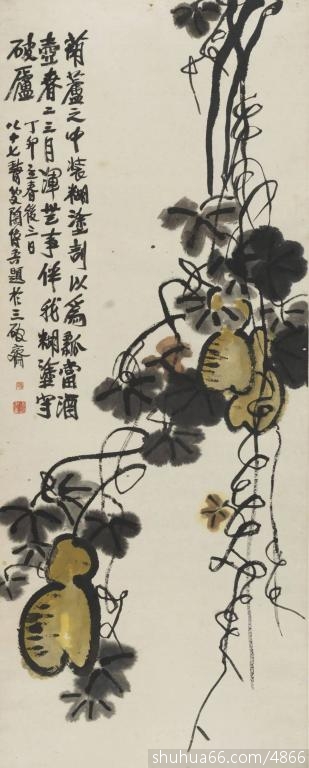 葫蘆之中裝糊塗剖以爲瓢當酒
壺春二三月渾無事伴我糊塗守
破廬
丁卯立春後二日
七聾叟題於三破齋
shuhua66.com/4866